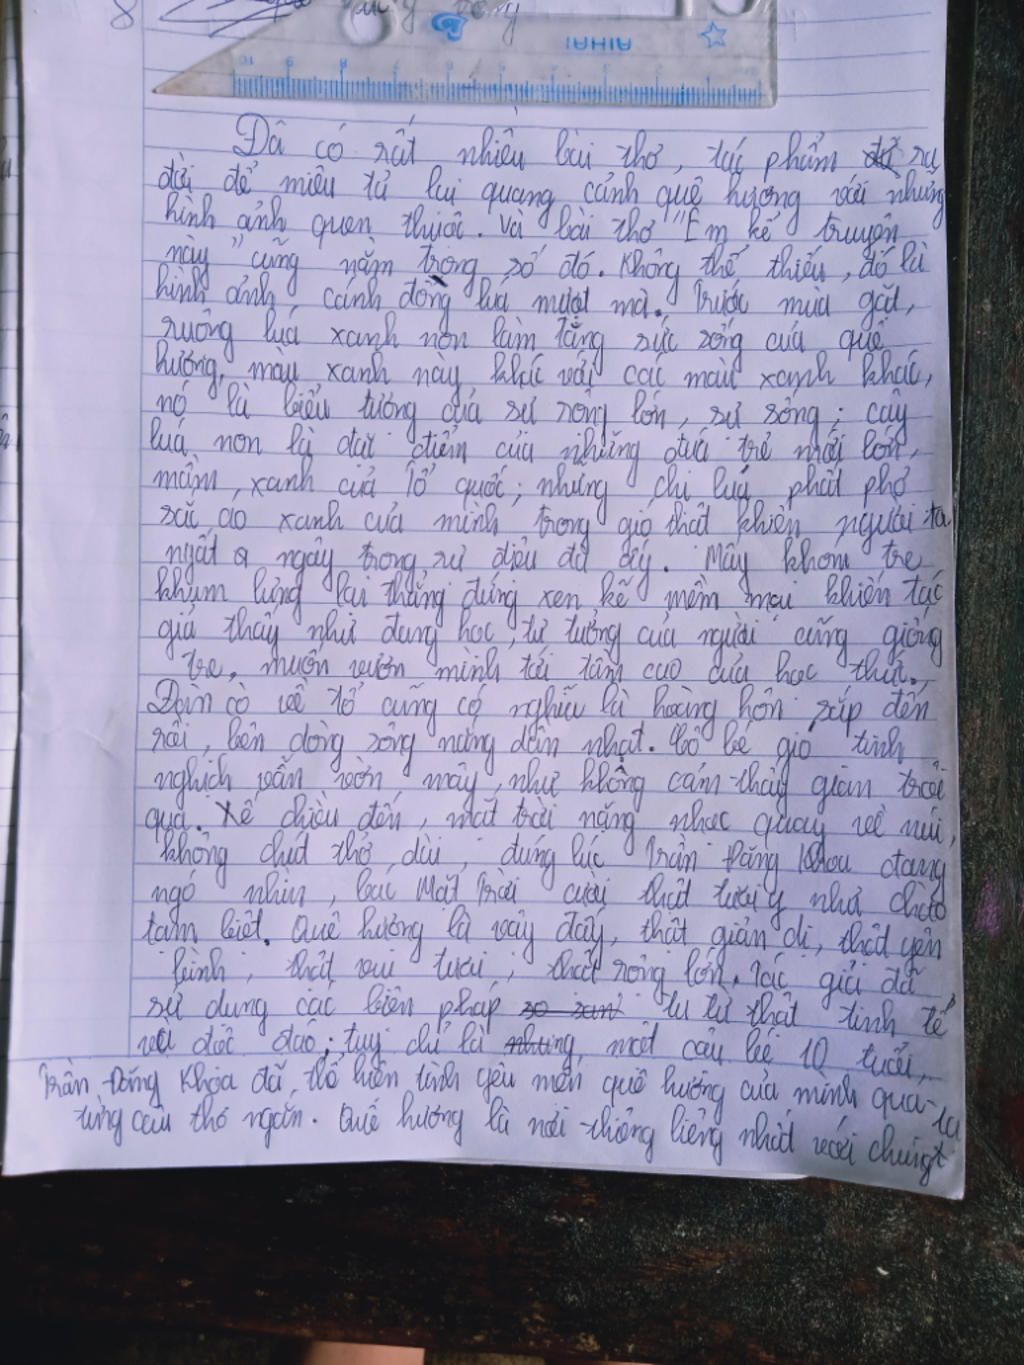 8
10 9 8 7 6 5 4 3 2 1
Đã có rất nhiều bài thơ, tác phẩm ra
đời để miêu tả lại quang cảnh quê hương với những
hình ảnh quen thuộc. Và bài thơ "Em kể truyện
này" cũng nằm trong số đó. Không thể thiếu, đó là
hình ảnh cánh đồng lúa mượt mà. Trước mùa gặt,
ruộng lúa xanh non làm tăng sức sống của quê
hương, màu xanh này khác với các màu xanh khác,
nó là biểu tượng của sự rộng lớn, sự sống; cây
luá non là đại diểm của những đứa trẻ mới lớn,
mầm xanh của Tổ quốc; những chị luá phất phơ
sắc áo xanh của mình trong gió thật khiến người ta
ngất ngây trong sự điệu đà ấy. Mấy khóm tre
khụm lưng lại thẳng đứng xen kẽ mềm mại khiến tác
giả thấy như đang học, tư tưởng của người cũng giống
tre, muốn vươn mình tới tầm cao của học thức.
Đàn cò về tổ cũng có nghĩa là hoàng hôn sắp đến
rồi, bên dòng sông nắng dần nhạt. Cô bé gió tinh
nghịch vẫn vờn mây như không cảm thấy gian trôi
qua. Xế chiều đến, mặt trời nặng nhọc quay về núi,
không chút thở dài, đúng lúc Trần Đăng Khoa đang
ngó nhìn, bác Mặt Trời cười thật tươi như chào
tạm biệt. Quê hương là vậy đấy, thật giản dị, thật yên
bình, thật vui tươi, thật rộng lớn. Tác giả đã
sử dụng các biện pháp tu từ thật tinh tế
và độc đáo; tuy chỉ là một cậu bé 10 tuổi,
Trần Đăng Khoa đã thể hiện tình yêu mến quê hương của mình qua
từng câu thơ ngắn. Quê hương là nơi thiêng liêng nhất với chúng ta